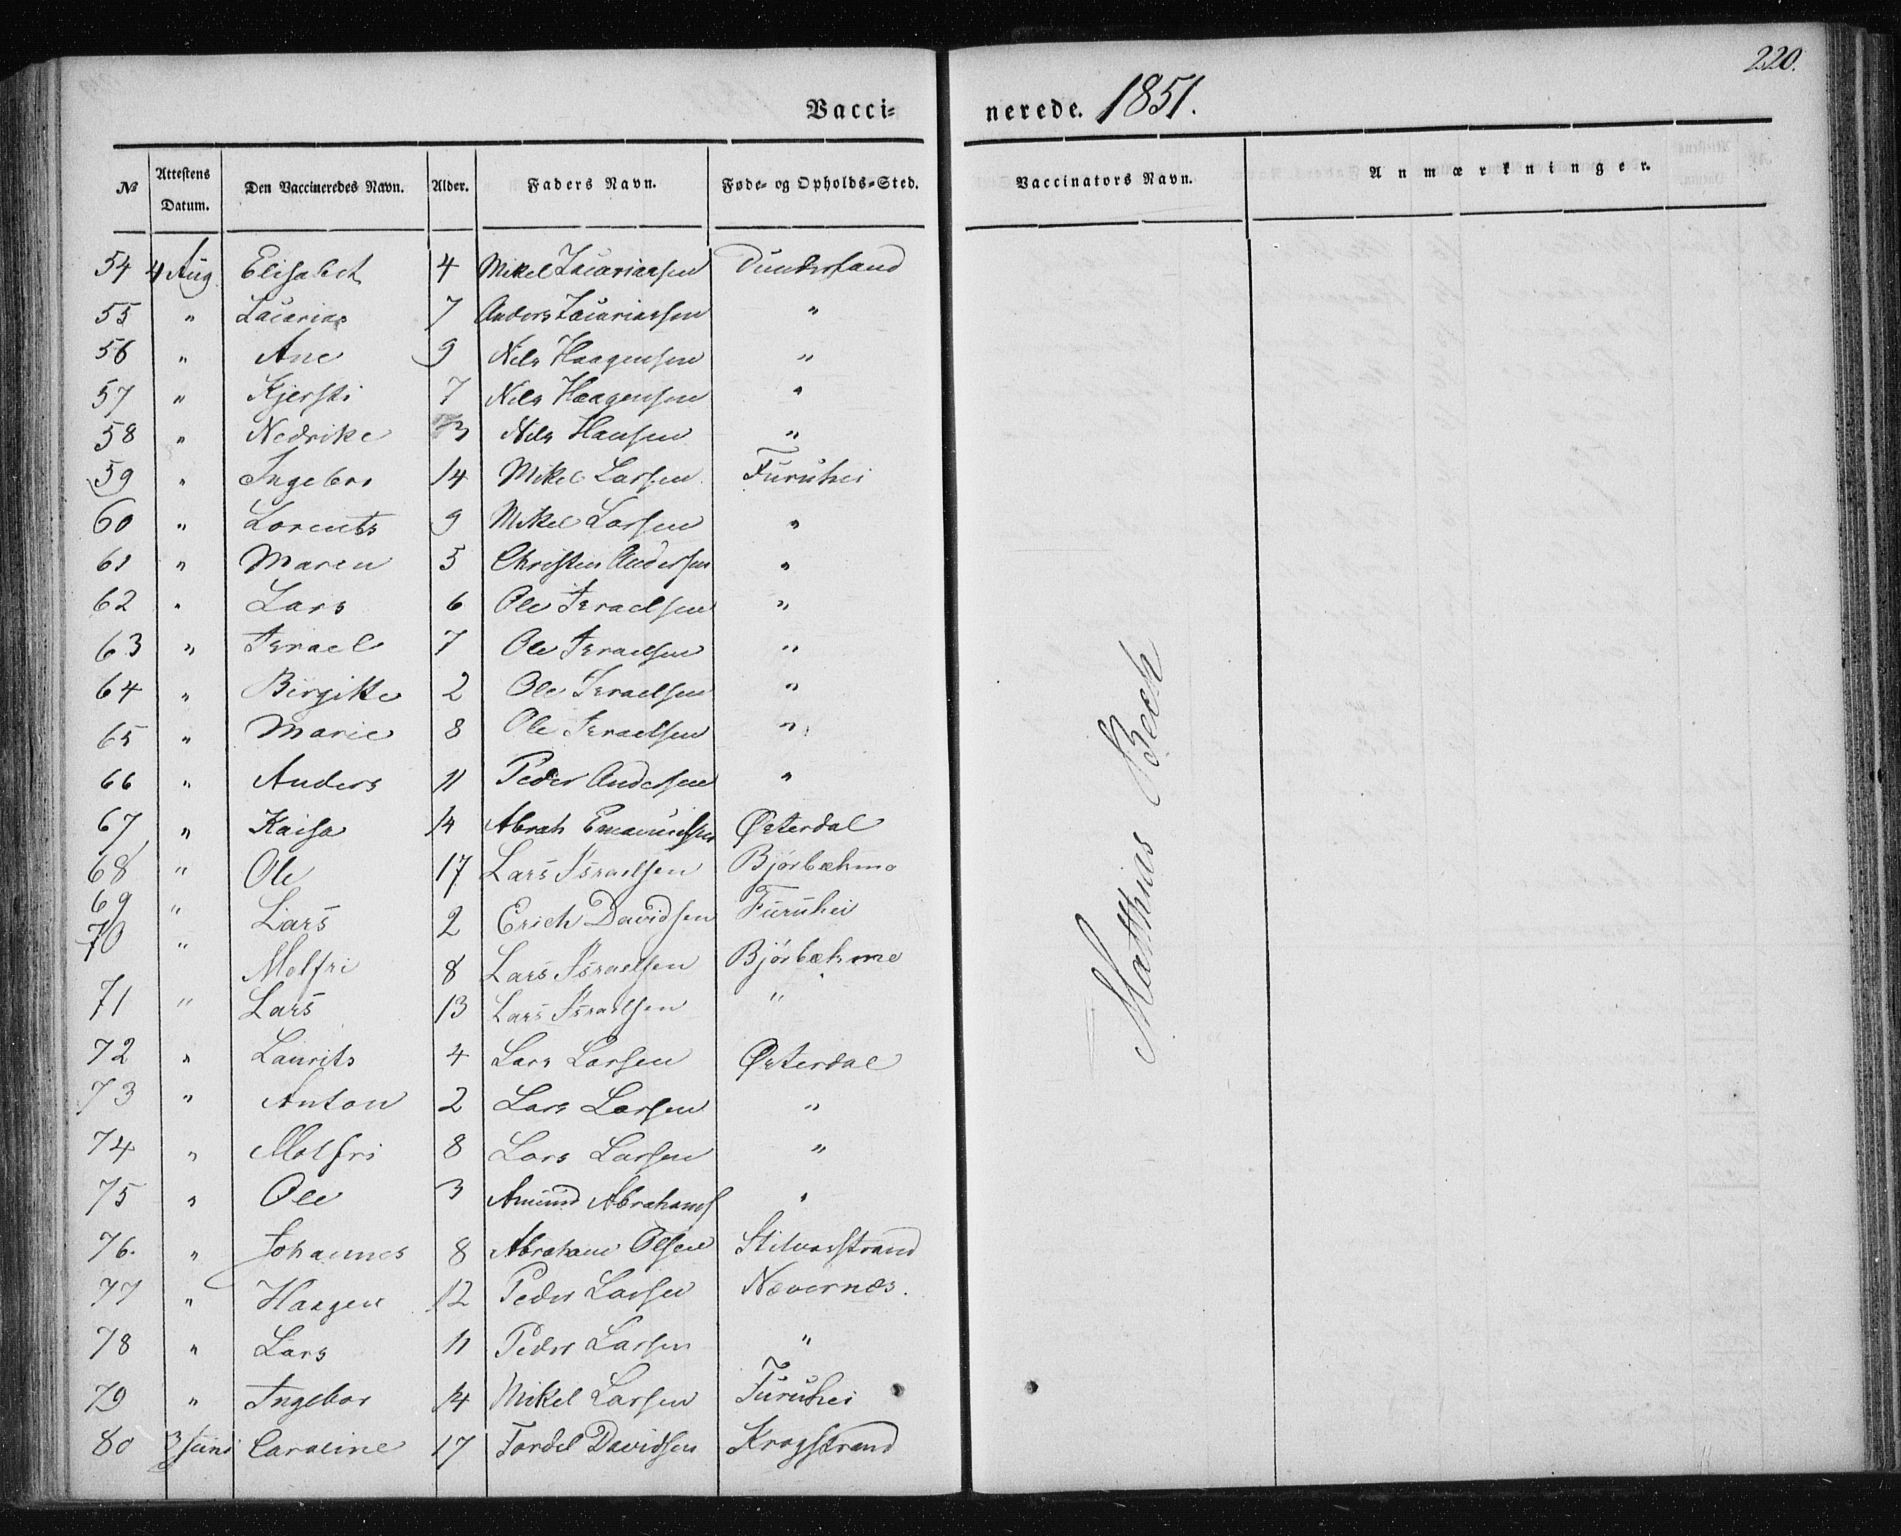 220.
Vacci- nerede. 1851.
No Attestens Datum. Den Vaccineredes Navn. Alder. Faders Navn. Føde- og Opholds-Sted. Vaccinators Navn. Anmærkninger.
54 4 Aug Elisabet 4 Mikel Zacariassen Dunderland
55 " Zacarias 7 Anders Zacariassen "
56 " Ane 9 Nels Haagensen "
57 " Kjersti 7 Nels Haagensen "
58 " Nedrike 3 Nels Hansen "
59 " Ingebor 14 Mikel Larsen Furuhei
60 " Lorents 9 Mikel Larsen "
61 " Maren 5 Christen Andersen "
62 " Lars 6 Ole Israelsen "
63 " Israel 7 Ole Israelsen "
64 " Birgitte 2 Ole Israelsen "
65 " Marie 8 Ole Israelsen "
66 " Anders 11 Peder Andersen "
67 " Kaisa 14 Abrah Emanuelsen Østerdal
68 " Ole 17 Lars Israelsen Bjørbækmo
69 " Lars 2 Erich Davidsen Furuhei
70 " Molfri 8 Lars Israelsen Bjørbækmo
71 " Lars 13 Lars Israelsen "
72 " Laurits 4 Lars Larsen Østerdal
73 " Anton 2 Lars Larsen "
74 " Molfri 8 Lars Larsen "
75 " Ole 3 Amund Abrahams "
76. " Johannes 8 Abraham Olsen Stilvasstrand
77 " Haagen 12 Peder Larsen Nævernæs.
78 " Lars 11 Peder Larsen "
79 " Ingebor 14 Mikel Larsen Furuhei
80 3 Juni Caroline 17 Fordel Davidsen Kragstrand
Matthias Bech